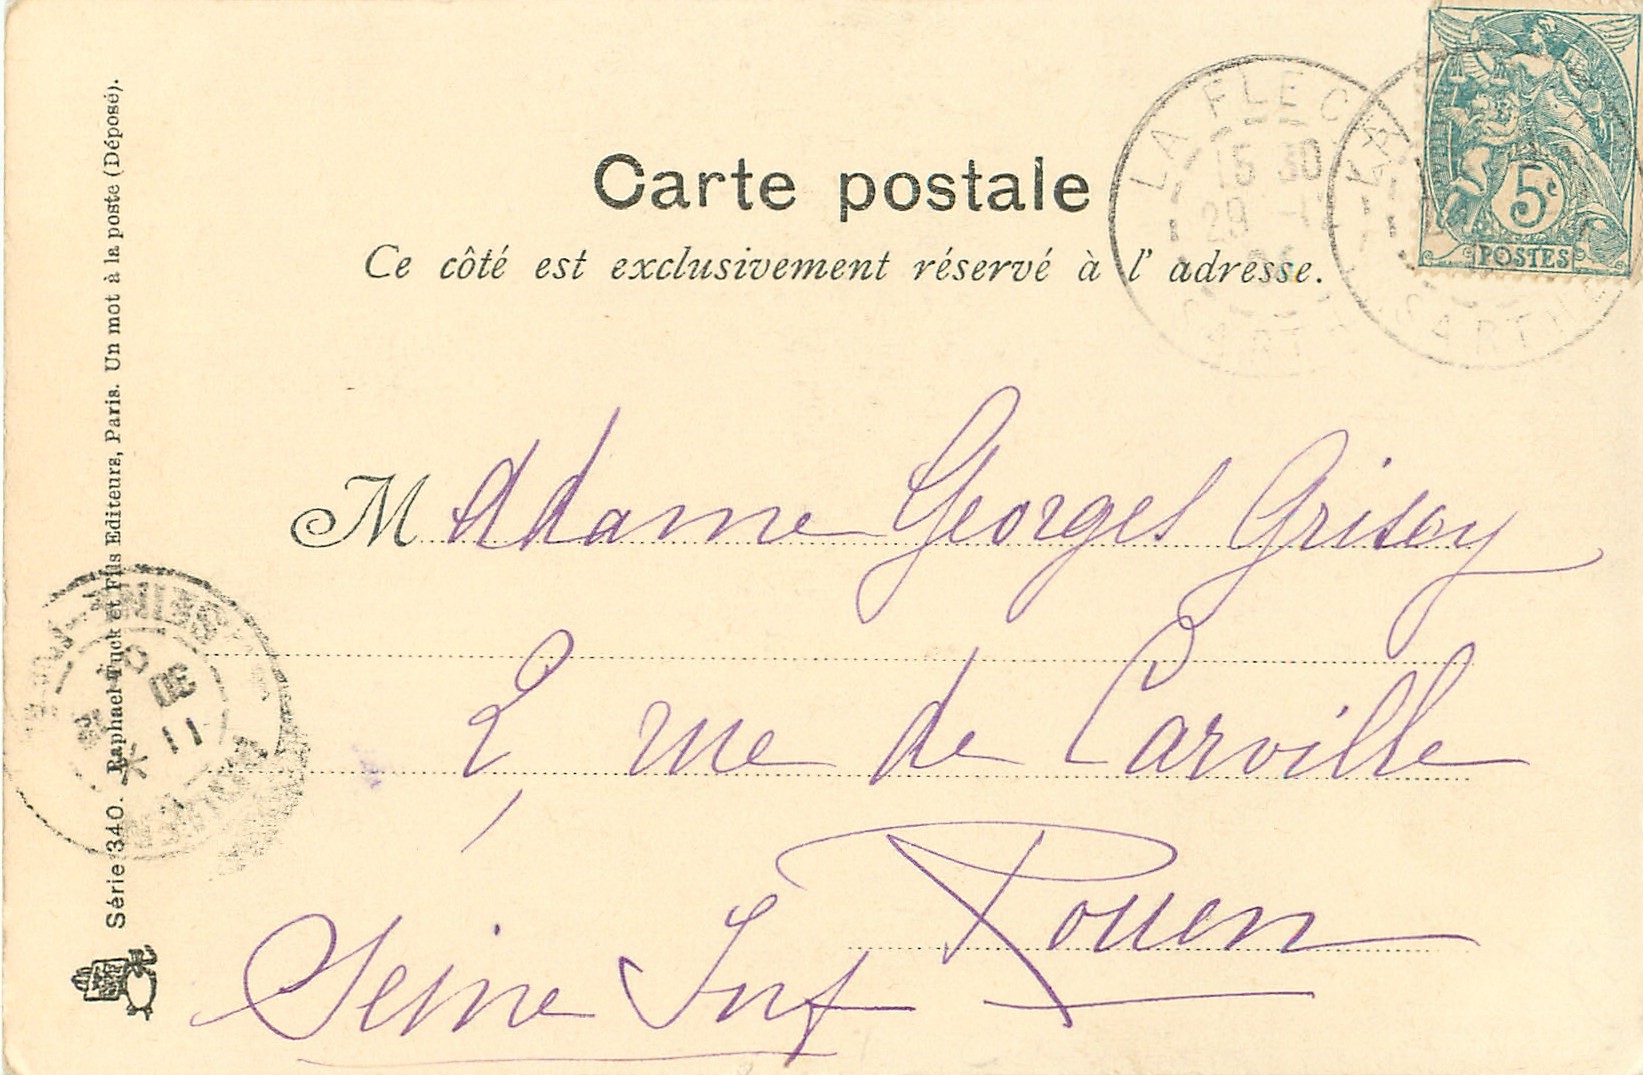 Carte postale
Ce côté est exclusivement réservé à l' adresse.
LA FLEC
15 30
29 -12
SARTH
LA
SARTHE
5c
POSTES
Madame Georges Grisoy
2, rue de Carville
Rouen
Seine Inf
Série 340. Raphael Tuck et Fils Editeurs, Paris. Un mot à la poste (Déposé).
11
30